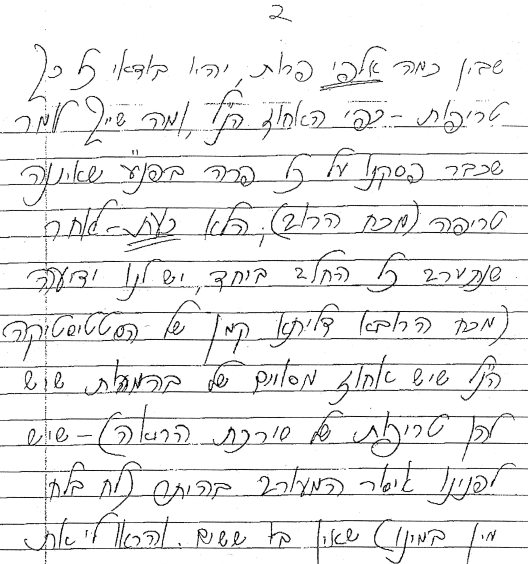 2
שבין כמה אלפי פרות, יהיו בודאי כל כך
טריפות – כפי האחוז הנ"ל, ומה שייך לומר
שכבר פסקנו על כל פרה בפנ"ע שאיננה
טריפה (מכח הרוב), הלא כעת – לאחר
שנתערב כל החלב ביחד, יש לנו ידיעה
(מכח הרובא דליתא קמן של הסטטיסטיקה
הנ"ל שיש אחוז מסוים של בהמות שיש
להן טריפות של סירכת הריאה) – שיש
לפנינו איסור המעורב בהיתר (לח בלח
מין במינו) שאין בו ששים. והראו לי את